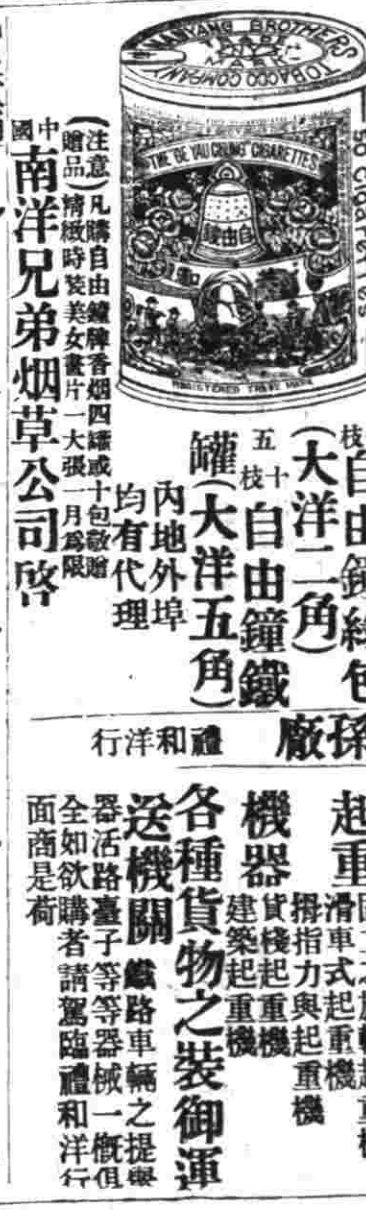 NANYANG BROTHERS
TOBACCO COMPANY
MARK
THE BE YAU CHUNG CIGARETTES
自由鐘
REGISTERED TRADE MARK
50 Cigarettes
枝自由鐘綠包
(大洋二角)
五十枝自由鐘鐵
罐(大洋五角)
內地外埠
均有代理
(注意)凡購自由鐘牌香烟四罐或十包敬贈
(贈品)精緻時裝美女畫片一大張一月爲限
中國南洋兄弟烟草公司啓
孫
廠
禮和洋行
起重
滑車式起重機
拇指力與起重機
機器
貨棧起重機
建築起重機
各種貨物之裝御運
送機關 鐵路車輛之提與
器活路臺子等等器械一槪俱
全如欲購者請駕臨禮和洋行
面商是荷